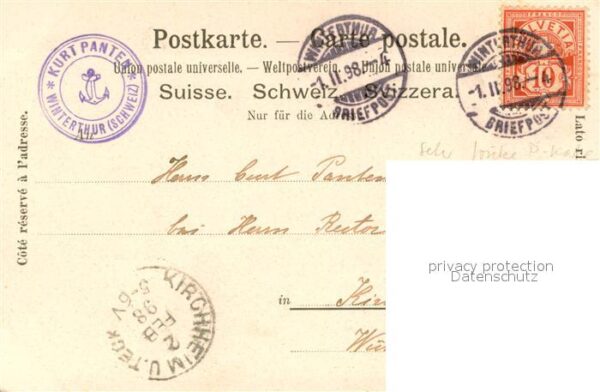 Postkarte. — Carte postale.
Union postale universelle. — Weltpostverein. — Unione postale universale.
Suisse. Schweiz. Svizzera.
Nur für die Ad
* KURT PANTEN *
WINTERTHUR (SCHWEIZ)
WINTERTHUR
BRIEFPOST
WINTERTHUR
-1.II.98.-10
BRIEFPOST
FRANCO
HELVETIA
10
Côté réservé à l'adresse.
Lato ri
Herrn Curt Panten
bei Herrn Rector
in Kir
Wür
KIRCHHEIM U. TECK
2 FEB 98
privacy protection
Datenschutz